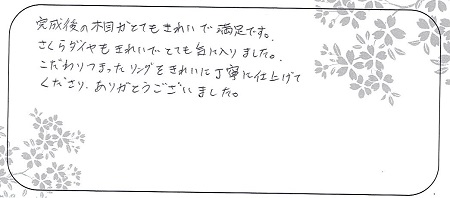 完成後の木目がとてもきれいで満足です。
さくらダイヤもきれいでとても気に入りました。
こだわりつまったリングをきれいに丁寧に仕上げて
くださり、ありがとうございました。